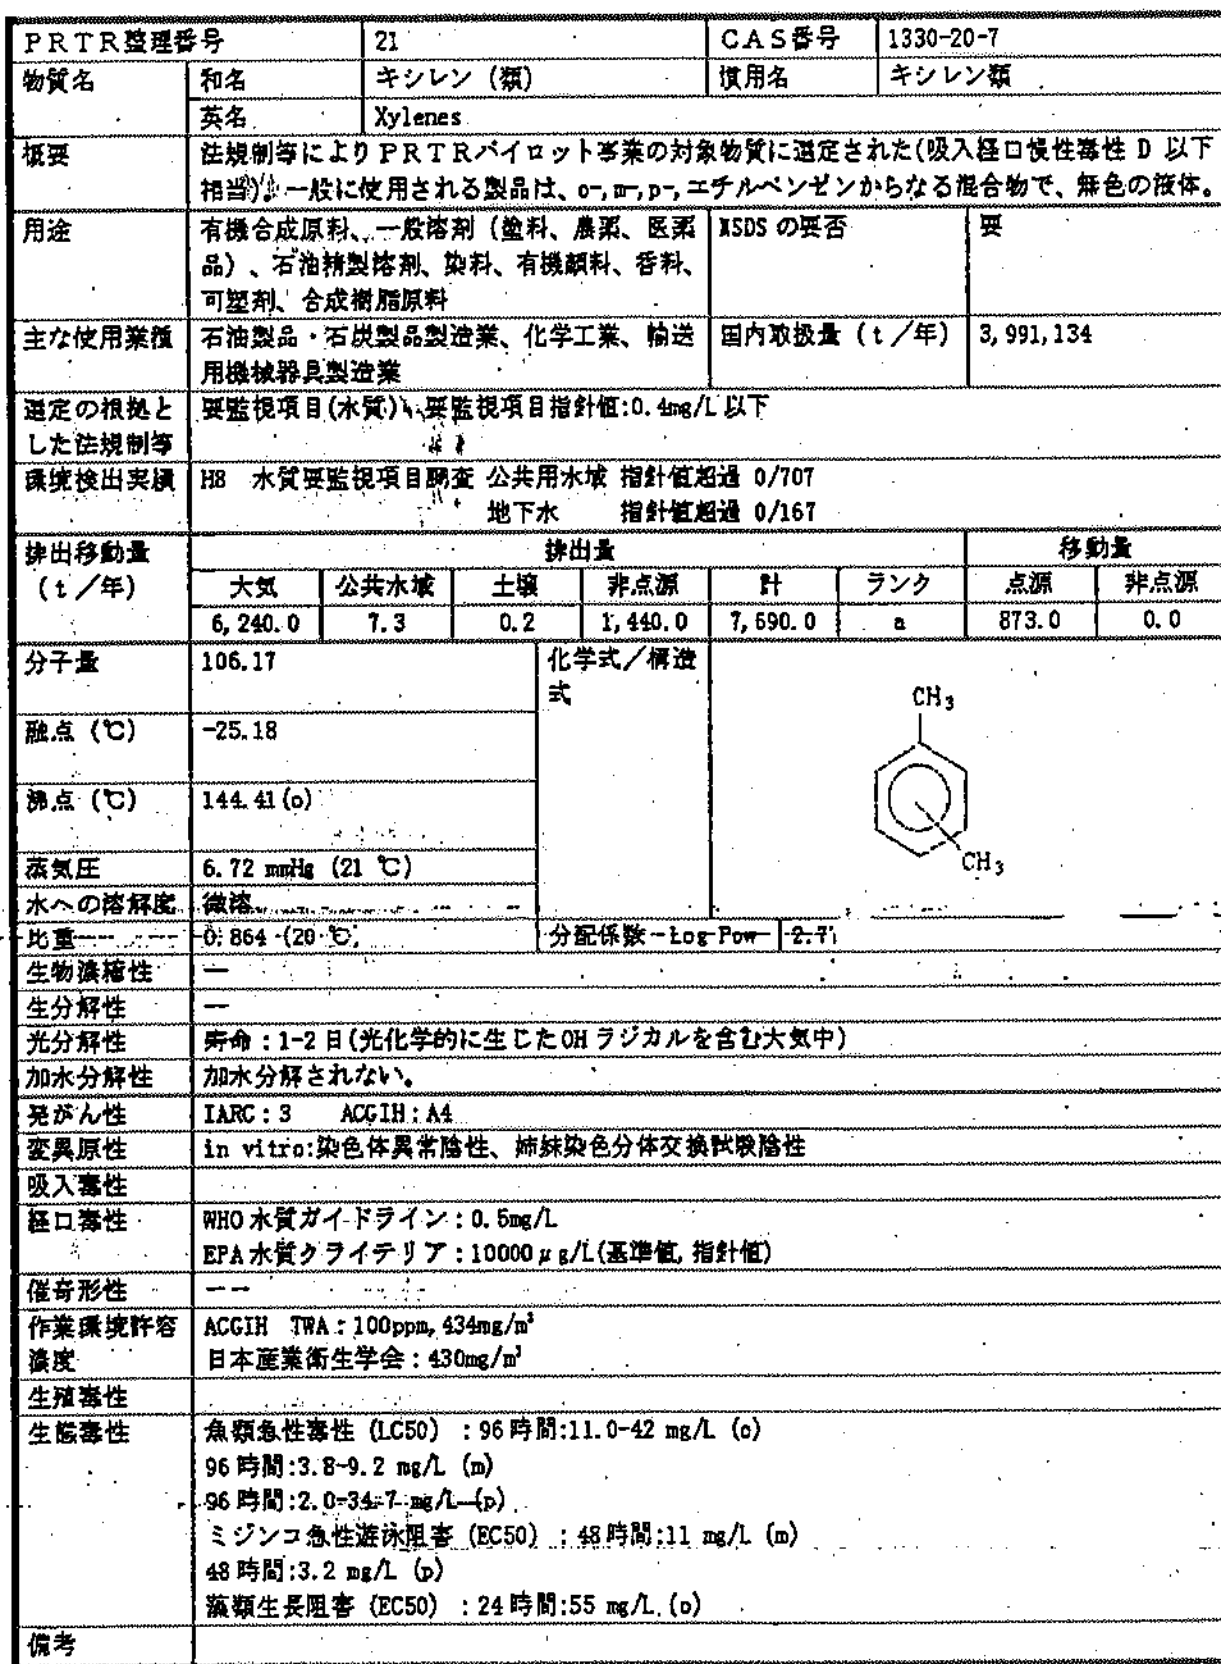 PRTR整理番号 21 CAS番号 1330-20-7
物質名 和名 キシレン (類) 慣用名 キシレン類
英名 Xylenes
概要 法規制等によりPRTRパイロット事業の対象物質に選定された(吸入経口慢性毒性 D 以下
相当)。一般に使用される製品は、o-,m-,p-,エチルベンゼンからなる混合物で、無色の液体。
用途 有機合成原料、一般溶剤 (塗料、農薬、医薬 MSDS の要否 要
品) 、石油精製溶剤、染料、有機顔料、香料、
可塑剤、合成樹脂原料
主な使用業種 石油製品・石炭製品製造業、化学工業、輸送 国内取扱量 (t/年) 3,991,134
用機械器具製造業
選定の根拠と 要監視項目(水質)、要監視項目指針値:0.4mg/L 以下
した法規制等
環境検出実績 H8 水質要監視項目調査 公共用水域 指針値超過 0/707
地下水 指針値超過 0/167
排出移動量 排出量 移動量
(t/年) 大気 公共水域 土壌 非点源 計 ランク 点源 非点源
6,240.0 7.3 0.2 1,440.0 7,690.0 a 873.0 0.0
分子量 106.17 化学式/構造
式
CH3
融点 (℃) -25.18
沸点 (℃) 144.41(o)
CH3
蒸気圧 6.72 mmHg (21 ℃)
水への溶解度 微溶
比重 0.864 (20 ℃) 分配係数 Log Pow 2.77
生物濃縮性 —
生分解性 —
光分解性 寿命:1-2 日(光化学的に生じた OH ラジカルを含む大気中)
加水分解性 加水分解されない。
発がん性 IARC:3 ACGIH:A4
変異原性 in vitro:染色体異常陰性、姉妹染色分体交換試験陰性
吸入毒性
経口毒性 WHO 水質ガイドライン:0.5mg/L
EPA 水質クライテリア:10000μg/L(基準値,指針値)
催奇形性 ——
作業環境許容 ACGIH TWA:100ppm,434mg/m³
濃度 日本産業衛生学会:430mg/m³
生殖毒性
生態毒性 魚類急性毒性 (LC50) :96 時間:11.0-42 mg/L (o)
96 時間:3.8-9.2 mg/L (m)
96 時間:2.0-34.7 mg/L (p)
ミジンコ急性遊泳阻害 (EC50) :48 時間:11 mg/L (m)
48 時間:3.2 mg/L (p)
藻類生長阻害 (EC50) :24 時間:55 mg/L (o)
備考